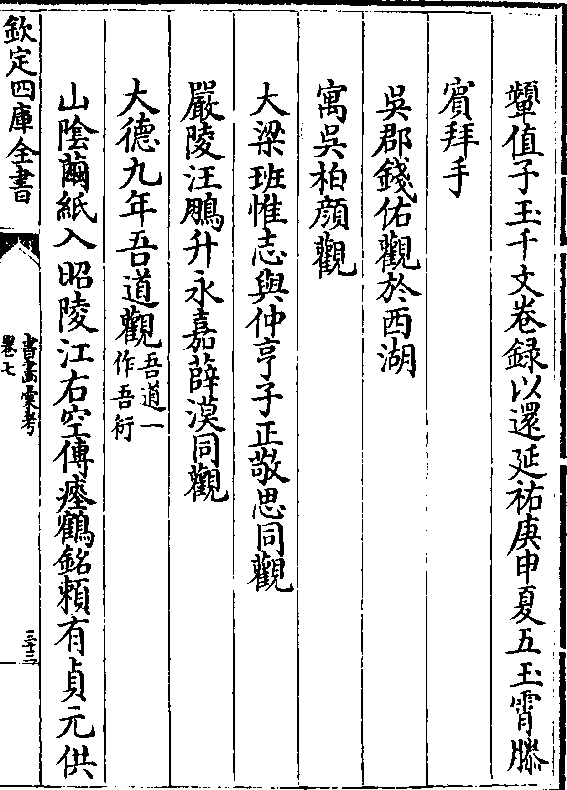 顰值子玉千文卷録以還延祐庚申夏五玉霄滕
賓拜手
吳郡錢佑觀於西湖
寓吳柏顔觀
大梁班惟志與仲亨子正敬思同觀
嚴陵汪鵬升永嘉薛漠同觀
大德九年吾道觀吾道一作吾衍
山陰繭紙入昭陵江右空傳瘞鶴銘頼有貞元供
欽定四庫全書
書畫彚考
卷七
三十三